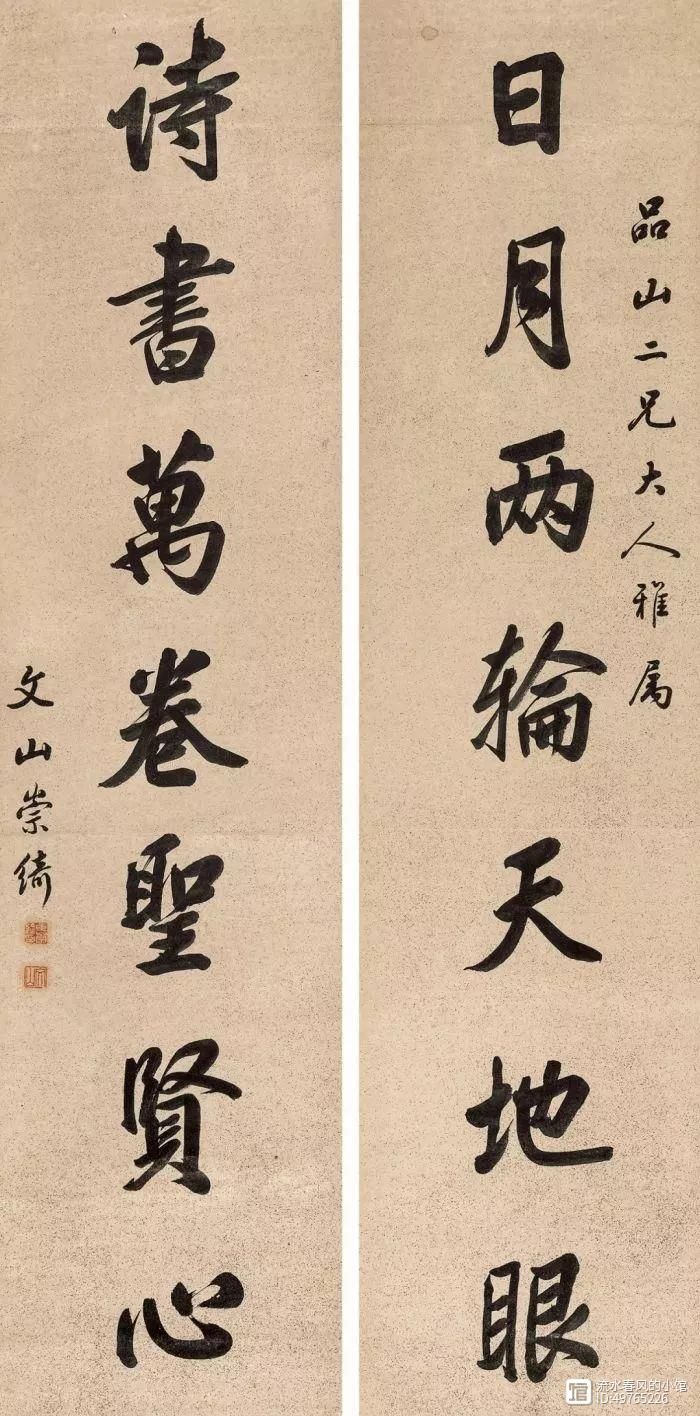 品山二兄大人雅属
日月两轮天地眼
诗書萬卷聖賢心
文山崇绮
流水春风的小馆
ID:49765226